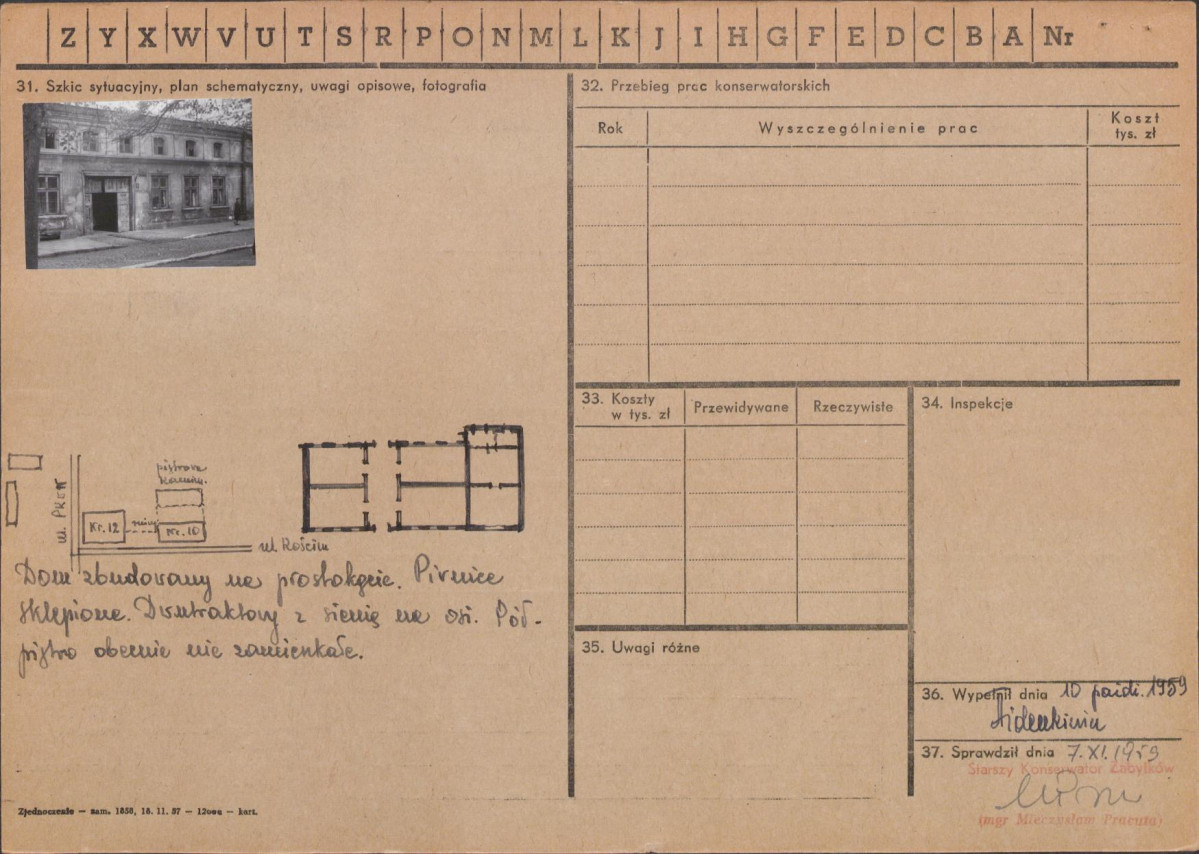 Z Y X W V U T S R P O N M L K J I H G F E D C B A Nr
31. Szkic sytuacyjny, plan schematyczny, uwagi opisowe, fotografia
ul. PREN
Kr. 12
Kr. 10
Dom zbudowany na prostokącie. Piwnice
sklepione. Dwutraktowy z sienią na osi. Pół-
piętro obecnie nie zamieszkałe.
Zjednoczenie — zam. 1850, 16. 11. 57 — — kart.
32. Przebieg prac konserwatorskich
Rok
Wyszczególnienie prac
Koszt
tys. zł
33. Koszty
w tys. zł
Przewidywane
Rzeczywiste
34. Inspekcje
35. Uwagi różne
36. Wypełnił dnia 10 paźdz. 1959
37. Sprawdził dnia 7. XI. 1959
Starszy Konserwator Zabytków
(mgr Mieczysław Pracuta)